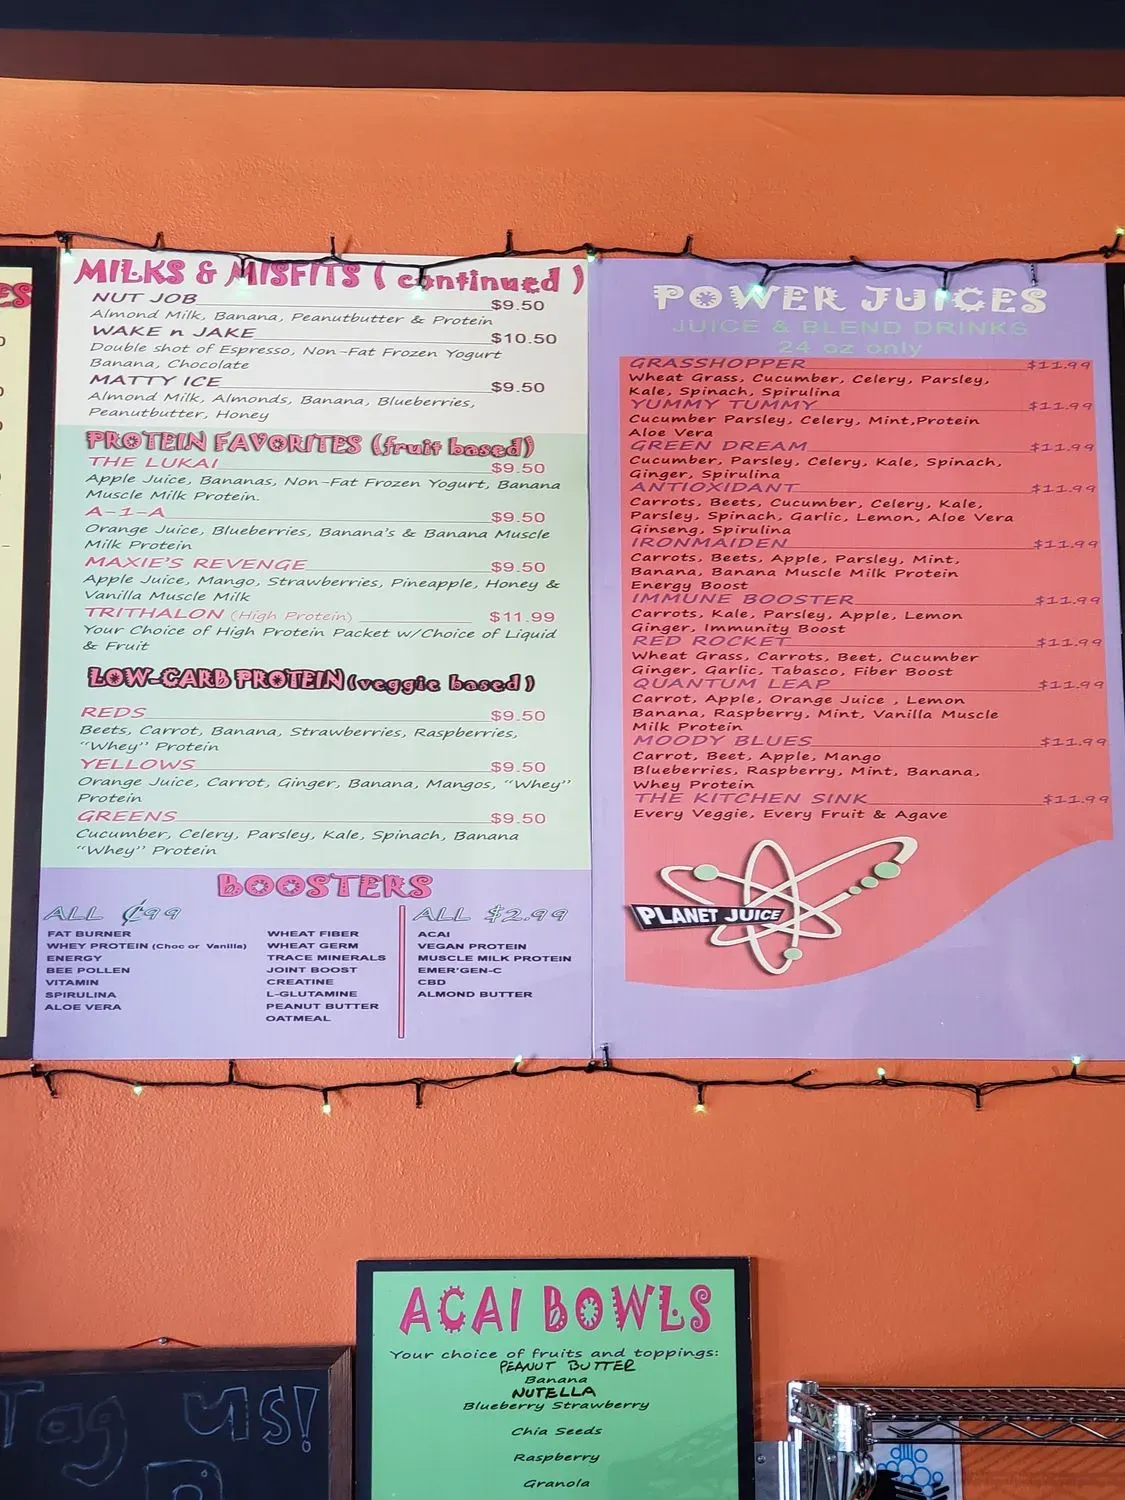 ES
MILKS & MISFITS ( continued )
NUT JOB $9.50
Almond Milk, Banana, Peanutbutter & Protein
WAKE n JAKE $10.50
Double shot of Espresso, Non-Fat Frozen Yogurt
Banana, Chocolate
MATTY ICE $9.50
Almond Milk, Almonds, Banana, Blueberries,
Peanutbutter, Honey
PROTEIN FAVORITES (fruit based)
THE LUKAI $9.50
Apple Juice, Bananas, Non-Fat Frozen Yogurt, Banana
Muscle Milk Protein.
A-1-A $9.50
Orange Juice, Blueberries, Banana's & Banana Muscle
Milk Protein
MAXIE'S REVENGE $9.50
Apple Juice, Mango, Strawberries, Pineapple, Honey &
Vanilla Muscle Milk
TRITHALON (High Protein) $11.99
Your Choice of High Protein Packet w/Choice of Liquid
& Fruit
LOW-CARB PROTEIN (veggie based)
REDS $9.50
Beets, Carrot, Banana, Strawberries, Raspberries,
"Whey" Protein
YELLOWS $9.50
Orange Juice, Carrot, Ginger, Banana, Mangos, "Whey"
Protein
GREENS $9.50
Cucumber, Celery, Parsley, Kale, Spinach, Banana
"Whey" Protein
BOOSTERS
ALL ¢99
FAT BURNER
WHEY PROTEIN (Choc or Vanilla)
ENERGY
BEE POLLEN
VITAMIN
SPIRULINA
ALOE VERA
WHEAT FIBER
WHEAT GERM
TRACE MINERALS
JOINT BOOST
CREATINE
L-GLUTAMINE
PEANUT BUTTER
OATMEAL
ALL $2.99
ACAI
VEGAN PROTEIN
MUSCLE MILK PROTEIN
EMER'GEN-C
CBD
ALMOND BUTTER
POWER JUICES
JUICE & BLEND DRINKS
24 oz only
GRASSHOPPER $11.99
Wheat Grass, Cucumber, Celery, Parsley,
Kale, Spinach, Spirulina
YUMMY TUMMY $11.99
Cucumber Parsley, Celery, Mint,Protein
Aloe Vera
GREEN DREAM $11.99
Cucumber, Parsley, Celery, Kale, Spinach,
Ginger, Spirulina
ANTIOXIDANT $11.99
Carrots, Beets, Cucumber, Celery, Kale,
Parsley, Spinach, Garlic, Lemon, Aloe Vera
Ginseng, Spirulina
IRONMAIDEN $11.99
Carrots, Beets, Apple, Parsley, Mint,
Banana, Banana Muscle Milk Protein
Energy Boost
IMMUNE BOOSTER $11.99
Carrots, Kale, Parsley, Apple, Lemon
Ginger, Immunity Boost
RED ROCKET $11.99
Wheat Grass, Carrots, Beet, Cucumber
Ginger, Garlic, Tabasco, Fiber Boost
QUANTUM LEAP $11.99
Carrot, Apple, Orange Juice , Lemon
Banana, Raspberry, Mint, Vanilla Muscle
Milk Protein
MOODY BLUES $11.99
Carrot, Beet, Apple, Mango
Blueberries, Raspberry, Mint, Banana,
Whey Protein
THE KITCHEN SINK $11.99
Every Veggie, Every Fruit & Agave
PLANET JUICE
ACAI BOWLS
Your choice of fruits and toppings:
PEANUT BUTTER
Banana
NUTELLA
Blueberry Strawberry
Chia Seeds
Raspberry
Granola
Tag us!